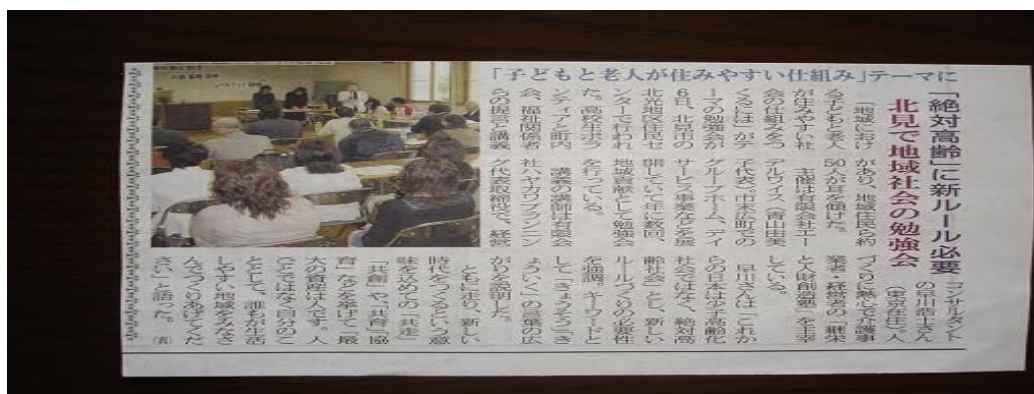 「子どもと老人が住みやすい仕組み」テーマに
「絶対高齢」に新ルール必要
北見で地域社会の勉強会
「地域におけ
る子どもと老人
が住みやすい社
会の仕組みをつ
くるには」がテ
ーマの勉強会が
6日、北見市の
北光地区住民セ
ンターで行われ
た。高校生ボラ
ンティアと町内
会、福祉関係者
らの提言と講義
があり、地域住民ら約
50人が耳を傾けた。
主催は有限会社エー
デルワイス(青山由美
子代表)。市末広町での
グループホーム、デイ
サービス事業などを展
開していて年に数回、
地域貢献として勉強会
を行っている。
講義の講師は有限会
社ハヤカワプランニン
グ代表取締役で、経営
コンサルタント
の早川浩士さん
(東京在住)。人
づくりに熱心で介護事
業者・経営者の「継栄
と人財創造塾」を主宰
している。
早川さんは「これか
らの日本は少子高齢化
社会ではなく、絶対高
齢社会」とし、新しい
ルールづくりの必要性
を強調。キーワードと
して「きょうそう」「き
ょういく」の言葉の広
がりを説明した。
ともに走り、新しい
時代をつくるという意
味を込めての「共走」
「共創」や、「共育」「協
育」などを挙げて「最
大の資産は人です。人
ごとではなく自分のこ
ととして、誰もが生活
しやすい地域をみなさ
んでつくりあげてくだ
さい」と語った。